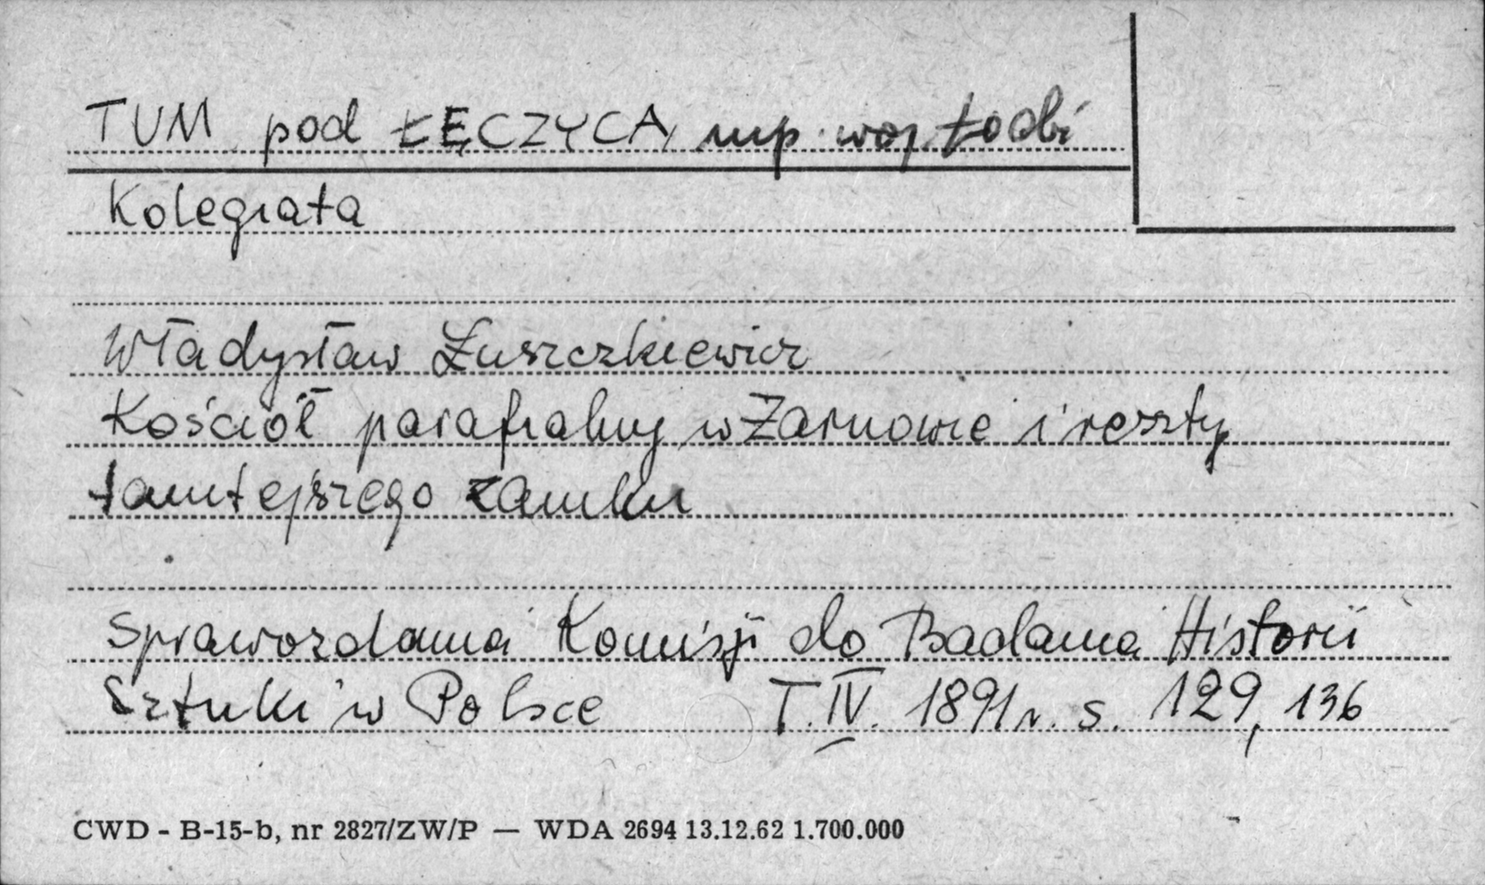 TUM pod ŁĘCZYCĄ, woj. Łódź
Kolegiata
Władysław Łuszczkiewicz
Kościół parafialny w Żarnowie i reszty
tamtejszego zamku
Sprawozdania Komisji do Badania Historii
Sztuki w Polsce T. IV. 1891 r. s. 129, 136
CWD - B-15-b, nr 2827/ZW/P — WDA 2694 13.12.62 1.700.000